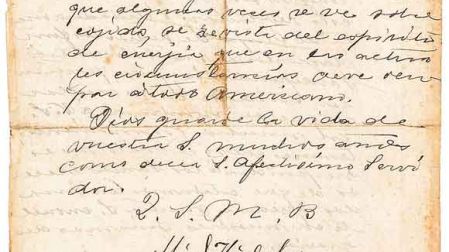 que algunas veces se ve sobre
cojido, se revista del espiritu
de energia que en las actua
les circunstancias deve ren
par a todo Americano.
Dios guarde la vida de
vuestra S. muchos años
como decea S. Afectisimo Servi
dor.
Q. S. M. B